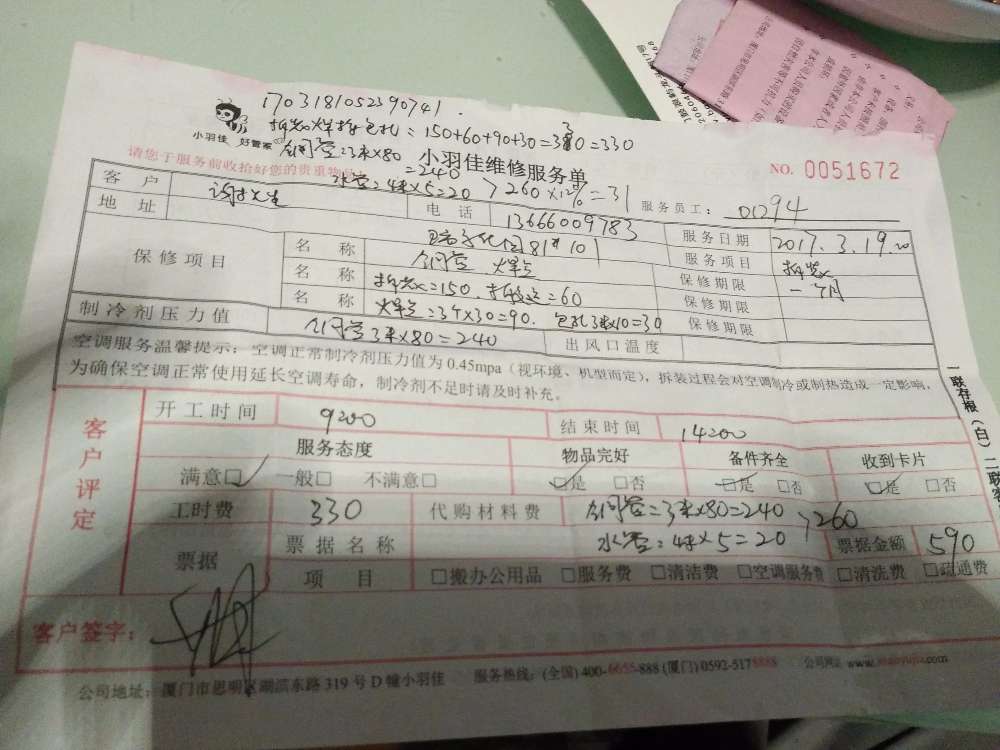 1703181052390741
拆装焊接包扎=150+60+90+30=330=330
小羽佳 好管家
铜管=3米×80=240
小羽佳维修服务单
NO. 0051672
请您于服务前收拾好您的贵重物品
水管=4米×5=20 >260×12%=31
服务员工: 01294
客户 谢先生 电话 13666009783 服务日期 2017.3.19
地址 81#101 服务项目 拆装
保修项目 名称 铜管、焊点 保修期限 一个月
名称 拆装=150. =60 保修期限
名称 焊点=3个×30=90. 包扎3米×10=30 保修期限
制冷剂压力值 铜管3米×80=240 出风口温度
空调服务温馨提示:空调正常制冷剂压力值为0.45mpa(视环境、机型而定),拆装过程会对空调制冷或制热造成一定影响,
为确保空调正常使用延长空调寿命,制冷剂不足时请及时补充。
一联存根(白)二联客
客户评定
开工时间 9:00 结束时间 14:00
服务态度 物品完好 备件齐全 收到卡片
满意□ 一般□ 不满意□ □是 □否 □是 □否 □是 □否
工时费 330 代购材料费 铜管=3米×80=240 >260
水管=4米×5=20
票据 票据名称 票据金额 590
项目 □搬办公用品 □服务费 □清洁费 □空调服务费 □清洗费 □疏通费
客户签字:
公司地址:厦门市思明区湖滨东路319号D幢小羽佳 服务热线:(全国)400-6655-888 (厦门)0592-5178888 公司网址:www.xiaoyujia.com